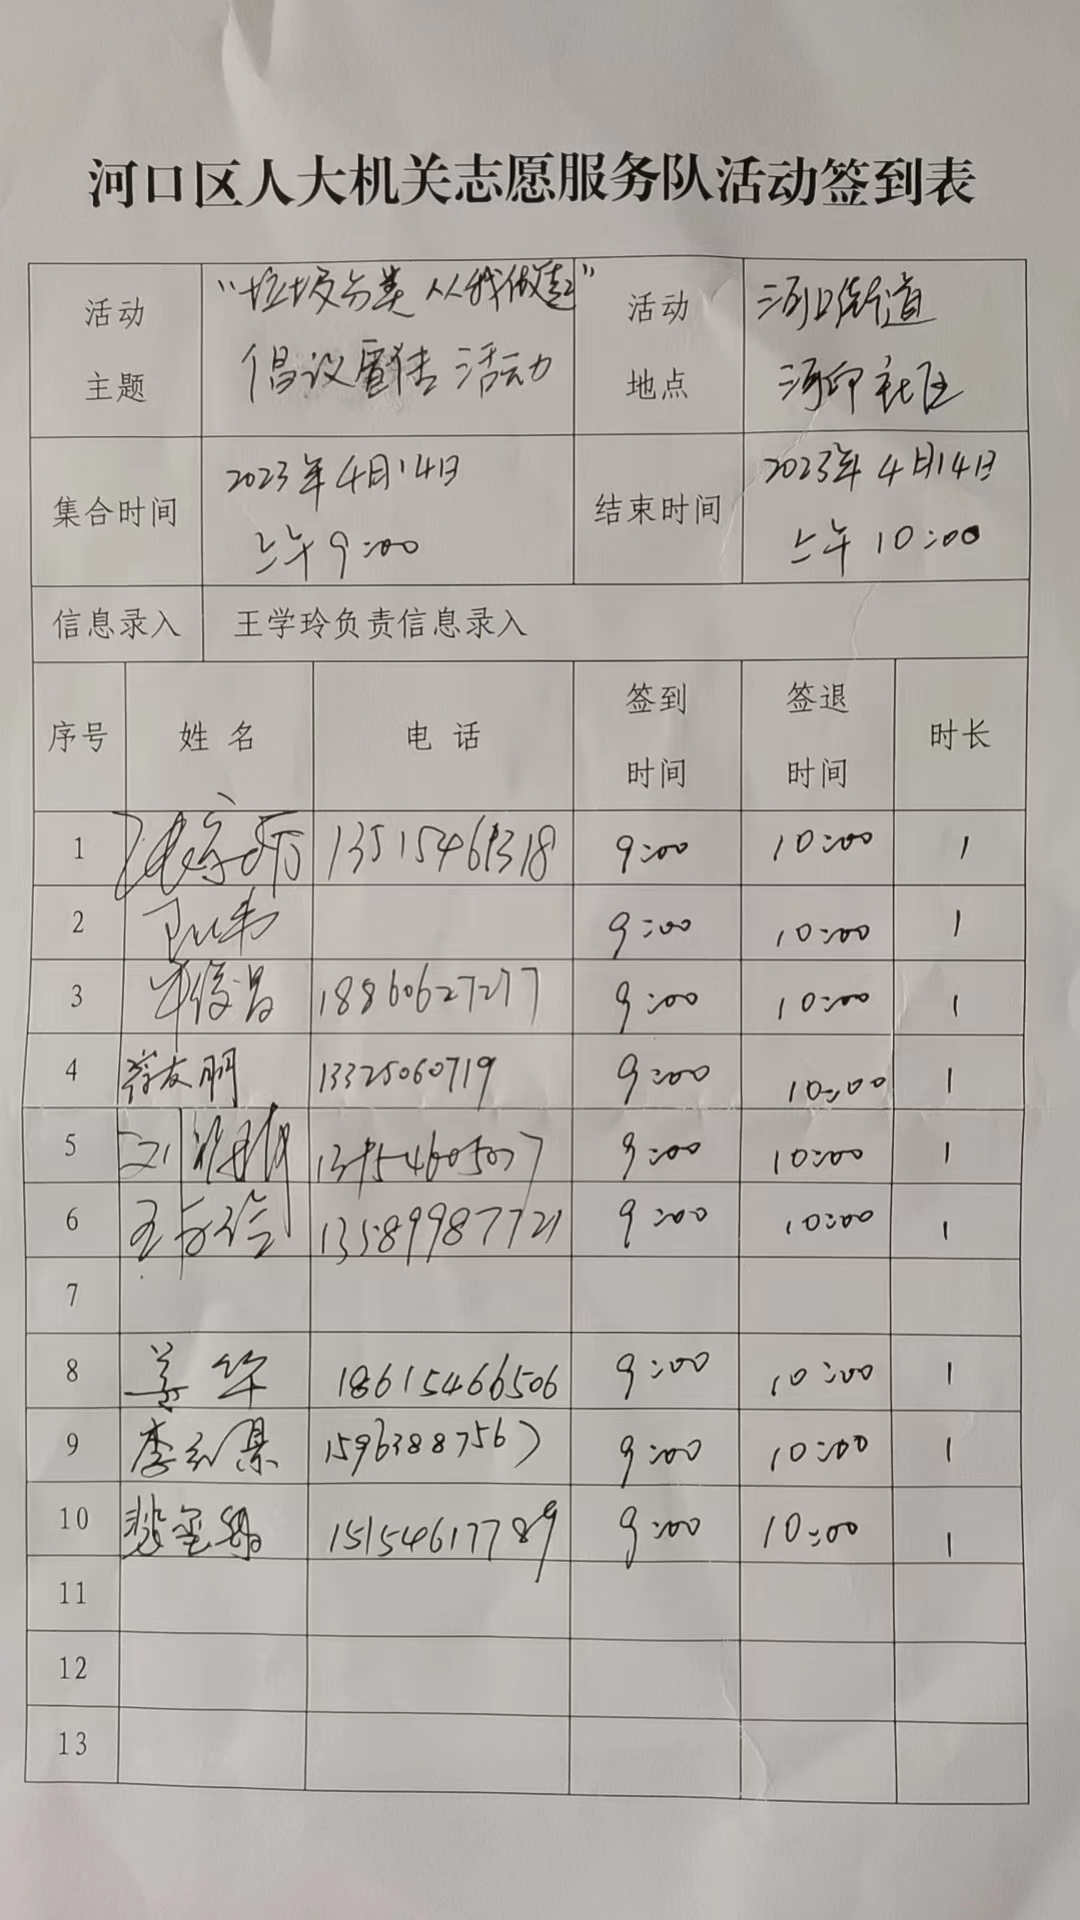 河口区人大机关志愿服务队活动签到表
活动主题 "垃圾分类 从我做起" 倡议宣传活动 活动地点 河口街道
集合时间 2023年4月14日 上午9:00 结束时间 2023年4月14日 上午10:00
信息录入 王学玲负责信息录入
序号 姓名 电话 签到时间 签退时间 时长
1 13515461318 9:00 10:00 1
2 9:00 10:00 1
3 18860627277 9:00 10:00 1
4 13325060719 9:00 10:00 1
5 9:00 10:00 1
6 13589987721 9:00 10:00 1
7
8 姜华 18615466506 9:00 10:00 1
9 15963887567 9:00 10:00 1
10 15154617789 9:00 10:00 1
11
12
13